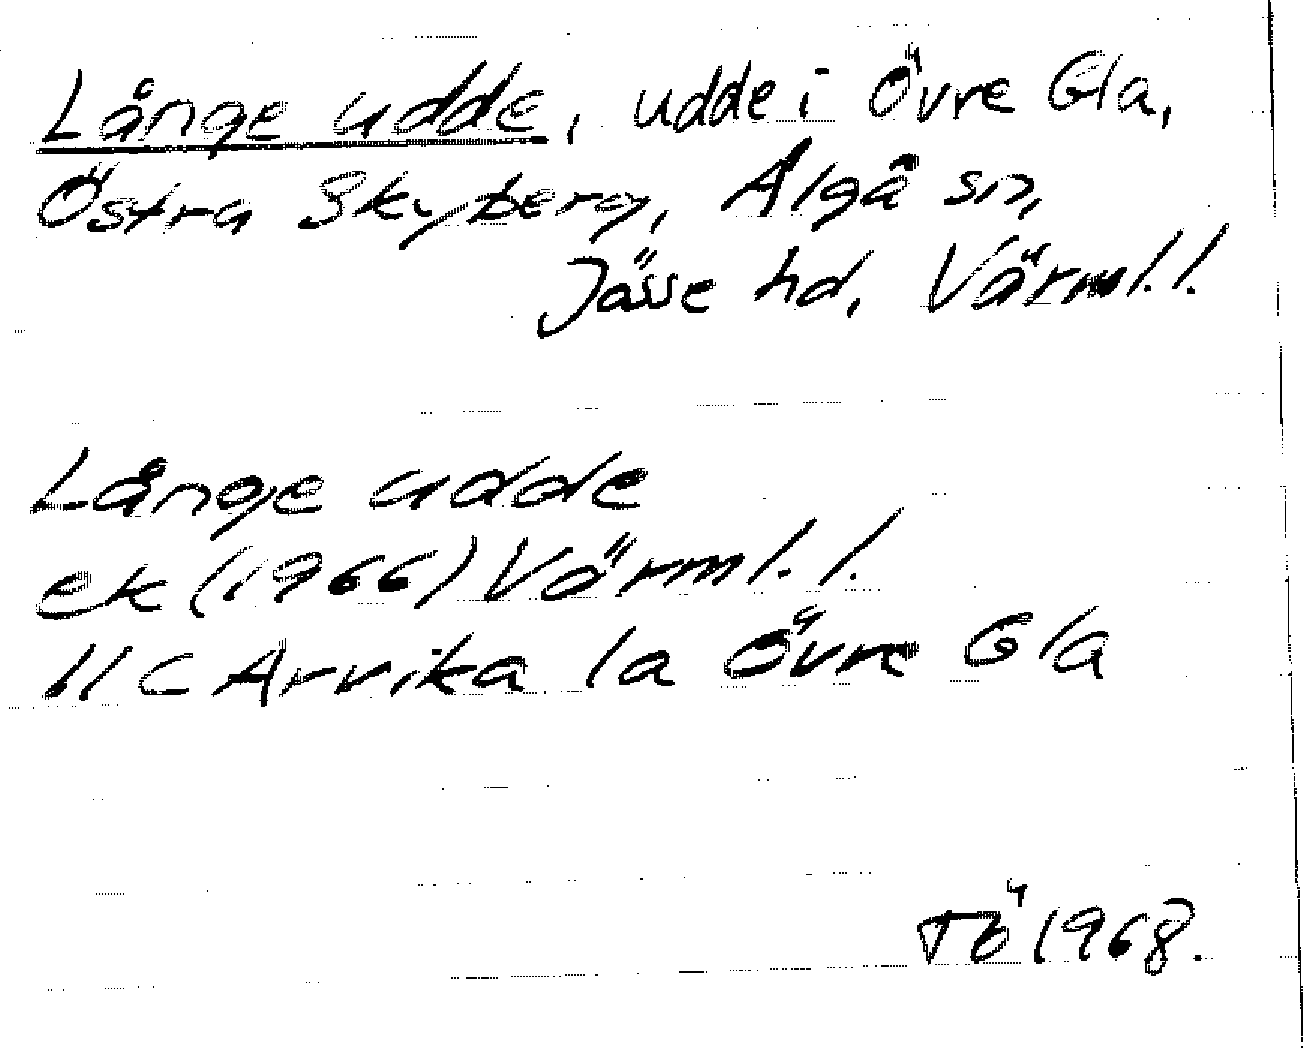 Långe udde, udde i Övre Gla,
Östra Skyberg, Älgå sn,
Jösse hd, Värml. l.
Långe udde
ek (1966) Värml. l.
11C Arvika 1a Övre Gla
TÖ 1968.